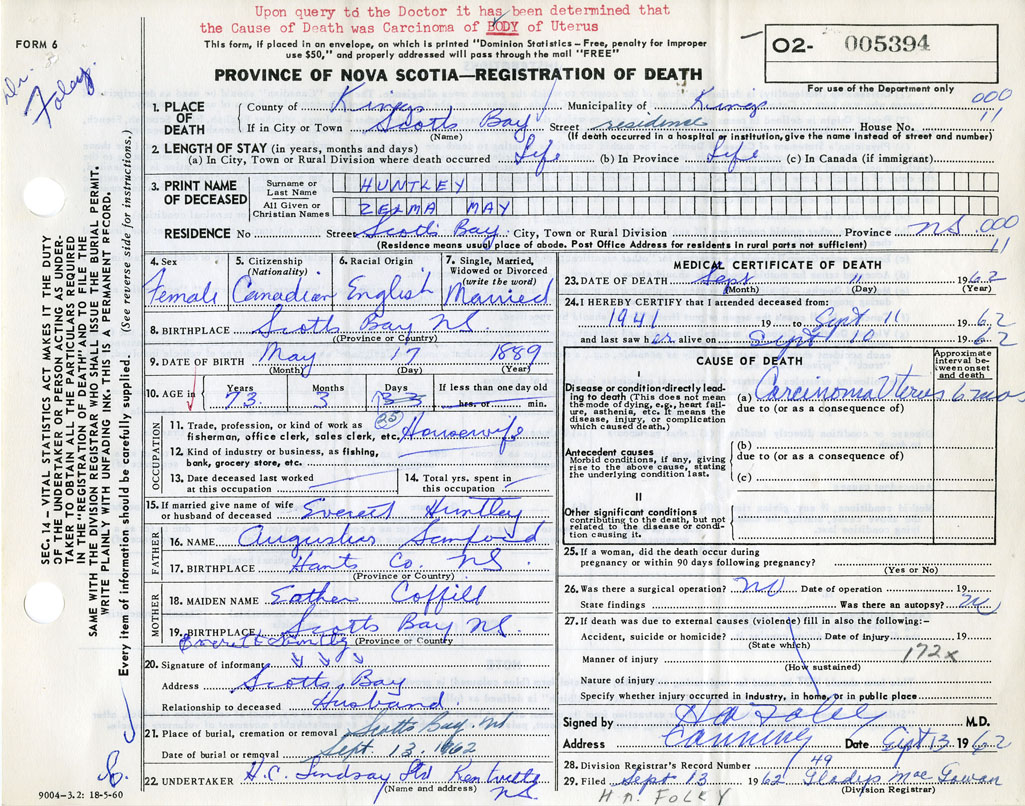 Upon query to the Doctor it has been determined that
the Cause of Death was Carcinoma of BODY of Uterus
FORM 6
This form, if placed in an envelope, on which is printed "Dominion Statistics – Free, penalty for improper
use $50," and properly addressed will pass through the mail "FREE"
PROVINCE OF NOVA SCOTIA—REGISTRATION OF DEATH
02- 005394
For use of the Department only
Dr. Foley
000
11
1. PLACE OF DEATH
County of Kings Municipality of Kings
If in City or Town Scotts Bay Street residence House No.
(Name) (If death occurred in a hospital or institution, give the name instead of street and number)
2. LENGTH OF STAY (in years, months and days)
(a) In City, Town or Rural Division where death occurred Life (b) In Province Life (c) In Canada (if immigrant)
3. PRINT NAME OF DECEASED
Surname or Last Name HUNTLEY
All Given or Christian Names ZELMA MAY
RESIDENCE No Street Scotts Bay City, Town or Rural Division Province NS 000
11
(Residence means usual place of abode. Post Office Address for residents in rural parts not sufficient)
4. Sex
Female
5. Citizenship (Nationality)
Canadian
6. Racial Origin
English
7. Single, Married, Widowed or Divorced (write the word)
Married
8. BIRTHPLACE Scotts Bay NS.
(Province or Country)
9. DATE OF BIRTH May 17 1889
(Month) (Day) (Year)
10. AGE in
Years 73
Months 3
Days
25
If less than one day old
hrs. or min.
OCCUPATION
11. Trade, profession, or kind of work as
fisherman, office clerk, sales clerk, etc. Housewife
12. Kind of industry or business, as fishing,
bank, grocery store, etc.
13. Date deceased last worked
at this occupation
14. Total yrs. spent in
this occupation
15. If married give name of wife
or husband of deceased Everett Huntley
FATHER
16. NAME Augustus Sanford
17. BIRTHPLACE Hants Co. NS.
(Province or Country)
MOTHER
18. MAIDEN NAME Esther Coffill
19. BIRTHPLACE Scotts Bay NS.
(Province or Country)
Everett Huntley
20. Signature of informant
Address Scotts Bay
Relationship to deceased Husband
21. Place of burial, cremation or removal Scotts Bay. NS
Date of burial or removal Sept. 13. 1962
22. UNDERTAKER H.C. Lindsay Ltd Kentville
(Name and address) NS.
9004–3.2: 18-5-60
MEDICAL CERTIFICATE OF DEATH
23. DATE OF DEATH Sept 11 1962
(Month) (Day) (Year)
24. I HEREBY CERTIFY that I attended deceased from:
1941 19 to Sept 11 1962
and last saw her alive on Sept 10 1962
CAUSE OF DEATH
Approximate interval between onset and death
I
Disease or condition directly leading to death (This does not mean the mode of dying, e.g., heart failure, asthenia, etc. It means the disease, injury, or complication which caused death.)
(a) Carcinoma Uterus 6 mos
due to (or as a consequence of)
Antecedent causes
Morbid conditions, if any, giving rise to the above cause, stating the underlying condition last.
(b)
due to (or as a consequence of)
(c)
II
Other significant conditions
contributing to the death, but not related to the disease or condition causing it.
25. If a woman, did the death occur during
pregnancy or within 90 days following pregnancy?
(Yes or No)
26. Was there a surgical operation? NO Date of operation 19
State findings Was there an autopsy? NO
27. If death was due to external causes (violence) fill in also the following:-
Accident, suicide or homicide? Date of injury 19
(State which)
172x
Manner of injury
(How sustained)
Nature of injury
Specify whether injury occurred in industry, in home, or in public place
Signed by H A Foley M.D.
Address Canning Date Sept 13 1962
28. Division Registrar's Record Number 49
29. Filed Sept 13 1962 Gladys MacGowan
(Division Registrar)
H A. FOLEY
SEC. 14 - VITAL STATISTICS ACT MAKES IT THE DUTY
OF THE UNDERTAKER OR PERSON ACTING AS UNDER-
TAKER TO OBTAIN ALL THE PARTICULARS REQUIRED
IN THE "REGISTRATION OF DEATH" AND TO FILE THE
SAME WITH THE DIVISION REGISTRAR WHO SHALL ISSUE THE BURIAL PERMIT.
WRITE PLAINLY WITH UNFADING INK. THIS IS A PERMANENT RECORD.
Every item of information should be carefully supplied. (See reverse side for instructions.)